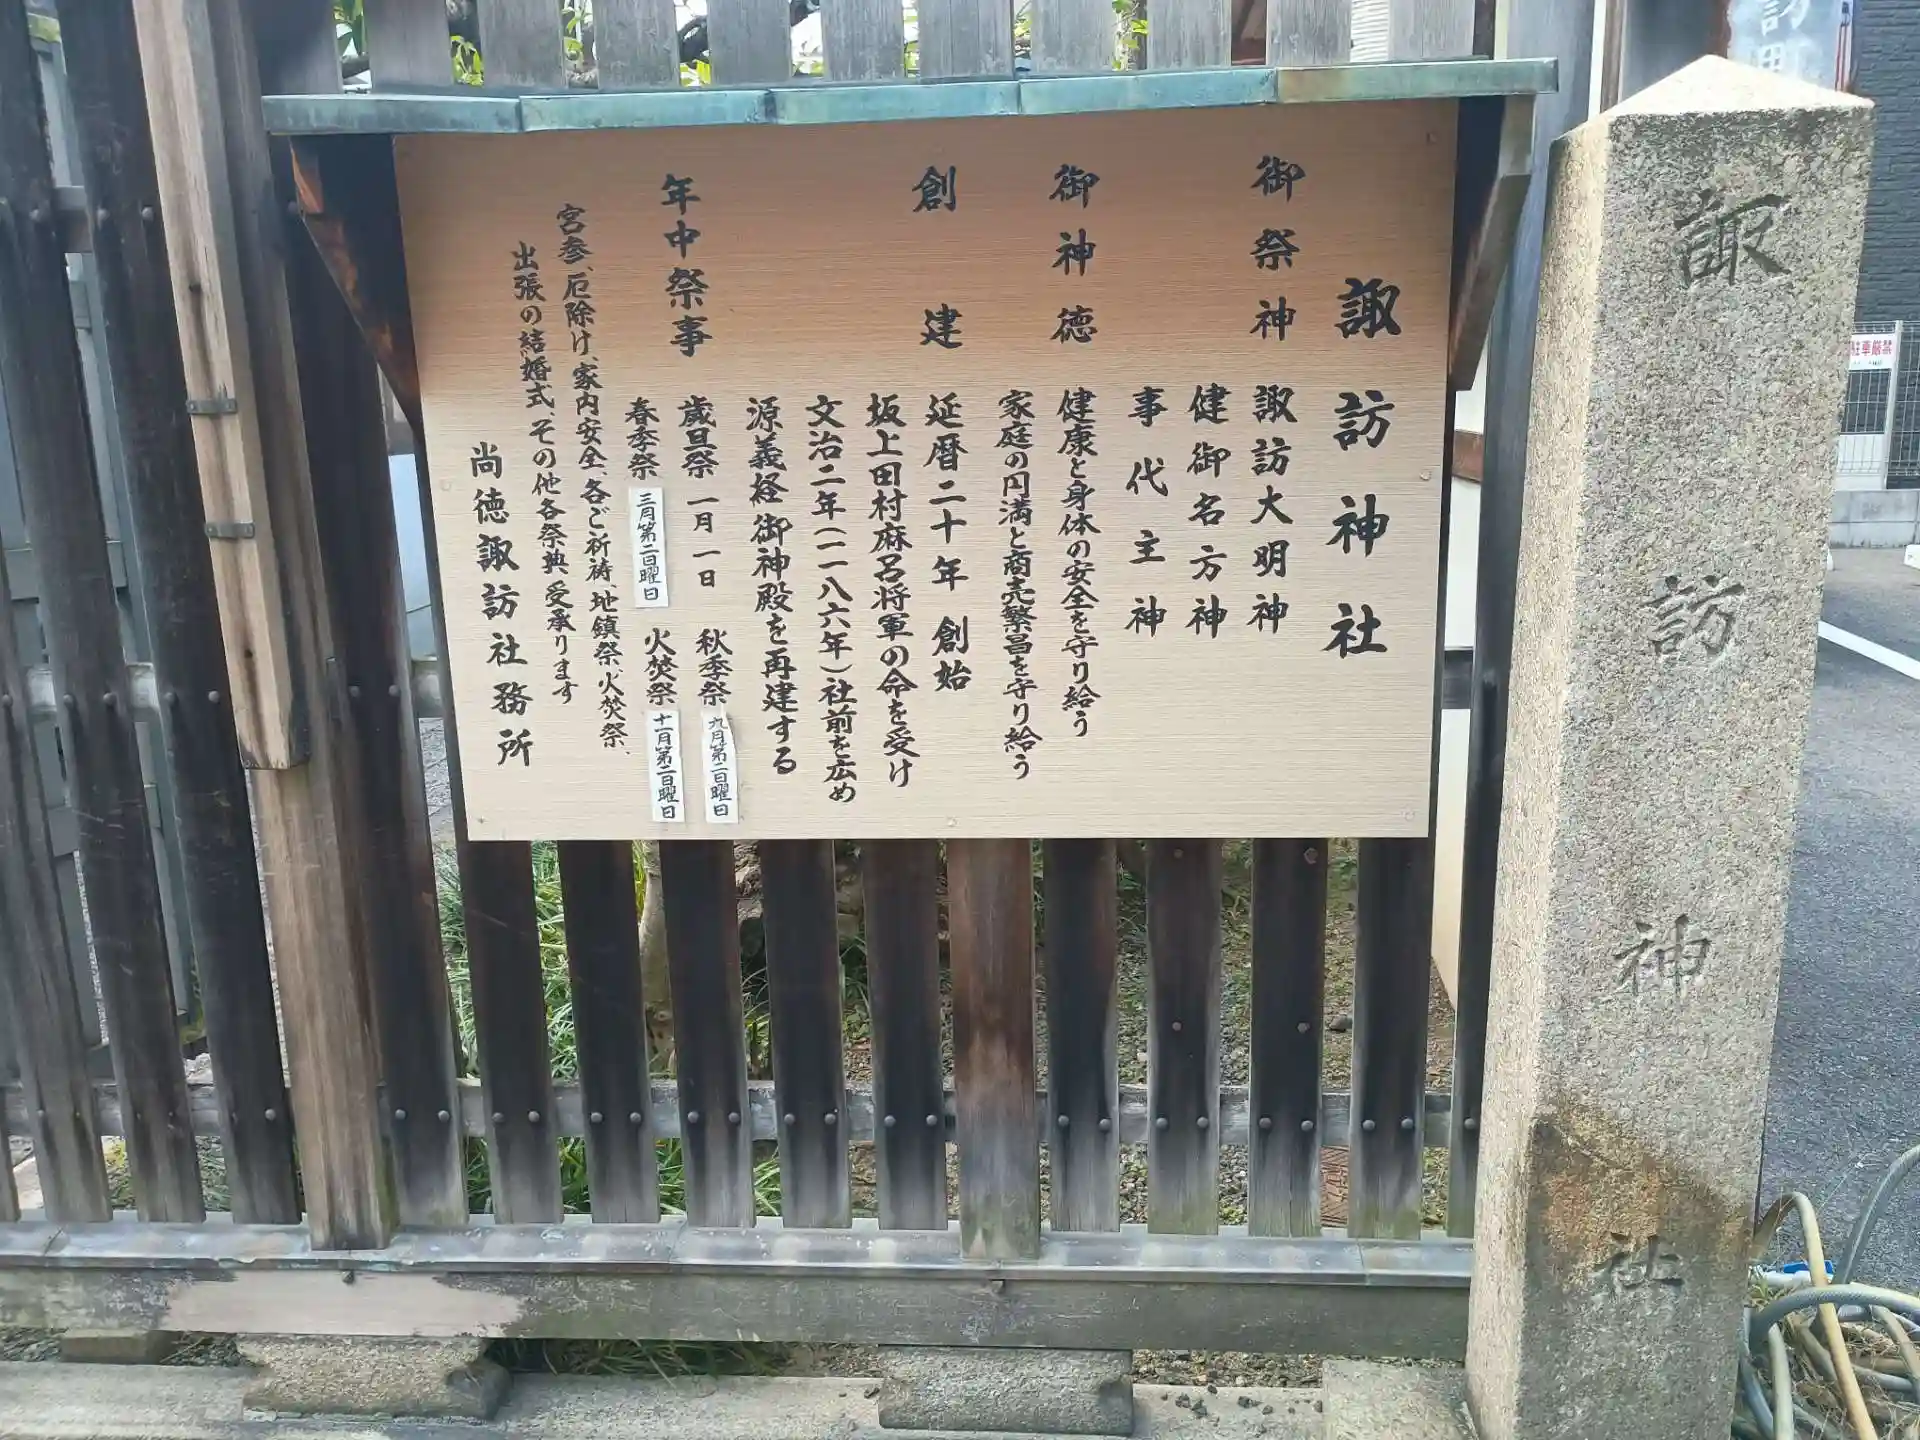 諏訪神社
御祭神 諏訪大明神
健御名方神
事代主神
御神徳 健康と身体の安全を守り給う
家庭の円満と商売繁昌を守り給う
創建 延暦二十年 創始
坂上田村麻呂将軍の命を受け
文治二年(一一八六年)社前を広め
源義経御神殿を再建する
年中祭事 歳旦祭 一月一日 秋季祭 九月第二日曜日
春季祭 三月第二日曜日 火焚祭 十一月第二日曜日
宮参、厄除け、家内安全、各ご祈祷、地鎮祭、火焚祭、
出張の結婚式、その他各祭典、受承ります
尚徳諏訪社務所
諏訪神社
訪町
駐車厳禁